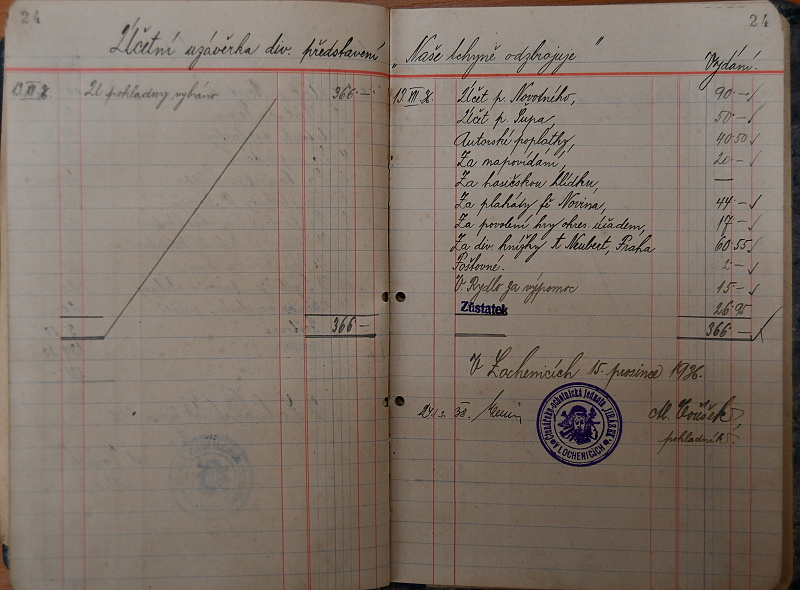 24
Účetní uzávěrka div. představení
13. XII. U pokladny vybráno 366.—
366.—
24
„Naše tchyně odzbrojuje"
Vydání.
13. XII. Účet p. Novotného, 90.—
Účet p. Šupa, 50.—
Autorské poplatky, 40.50
Za napovídání, 20.—
Za hasičskou hlídku, —
Za plakáty fě Novina, 44.—
Za povolení hry okres. úřadem, 17.—
Za div. knížky Neubert, Praha 60.55
Poštovné. 2.—
V. Rydlo za výpomoc 15.—
Zůstatek 26.95
366.—
V Lochenicích 15. prosince 1936.
24/3. 38.
M. Voňšek
pokladník
Divadelně-ochotnická jednota "JIRÁSEK" v LOCHENICÍCH